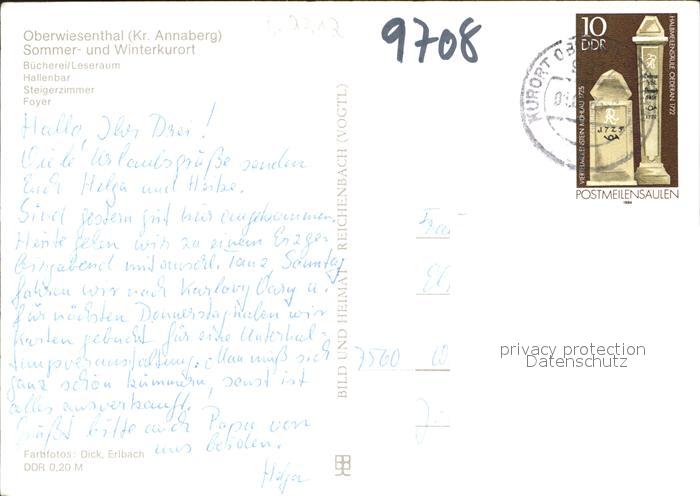 Oberwiesenthal (Kr. Annaberg)
Sommer- und Winterkurort
Bücherei/Leseraum
Hallenbar
Steigerzimmer
Foyer
Hallo, Ihr Drei!
Viele Urlaubsgrüße senden
Euch Helga und Heike.
Sind gestern gut hier angekommen.
Heute gehen wir zu einem Erzge-
birgsabend mit anschl. Tanz, Sonntag
fahren wir nach Karlovy Vary u.
für nächsten Donnerstag haben wir
Karten gebucht für eine Unterhal-
tungsveranstaltung. Man muß sich
ganz schön kümmern, sonst ist
alles ausverkauft!
Grüßt bitte auch Papa von
uns beiden.
Helga
Farbfotos: Dick, Erlbach
DDR 0,20 M
BILD UND HEIMAT REICHENBACH (VOGTL)
9708
10
DDR
HALBMEILENSÄULE OEDERAN 1722
VIERTELMEILENSTEIN MÜHLAU 1725
POSTMEILENSÄULEN
1984
KURORT OB
7560
privacy protection
Datenschutz